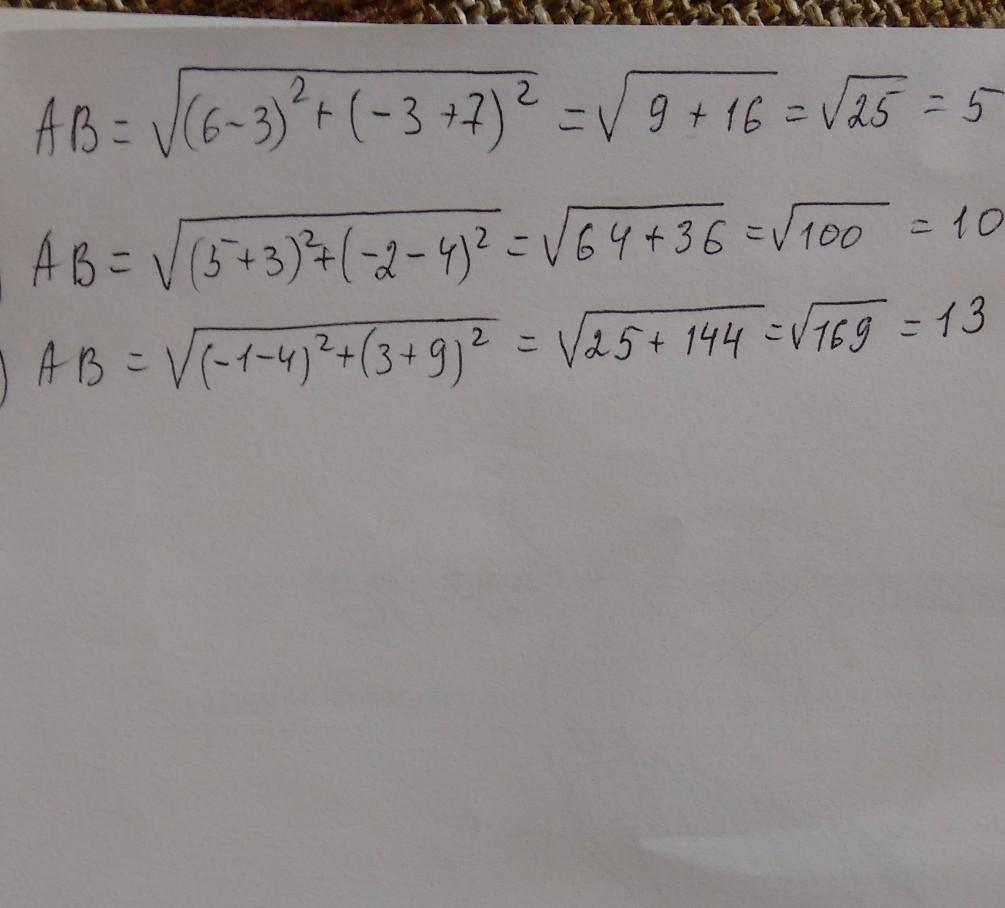 AB = √(6-3)² + (-3+7)² = √9 + 16 = √25 = 5
AB = √(5+3)² + (-2-4)² = √64+36 = √100 = 10
) AB = √(-1-4)² + (3+9)² = √25 + 144 = √169 = 13